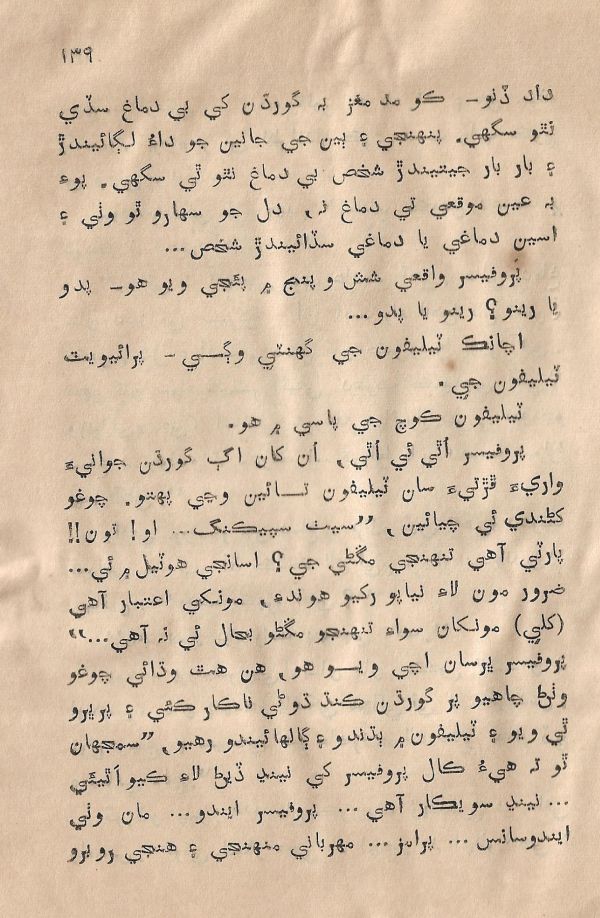 ۱۳۹
داد ڏنو- ڪو مد مغز به گورڌن کي بي دماغ سڏي
نٿو سگهي. پنهنجي ۽ ٻين جي جانين جو داءُ لڳائيندڙ
۽ بار بار جيتيندڙ شخص بي دماغ نٿو ٿي سگهي. پوءِ
به عين موقعي تي دماغ نه، دل جو سهارو ٿو وٺي ۽
اسين دماغي يا دماغي سڏائيندڙ شخص...
پروفيسر واقعي شش و پنج ۾ پئجي ويو هو- پدو
يا رينو؟ رينو يا پدو...
اچانڪ ٽيليفون جي گهنٽي وڳي- پرائيويٽ
ٽيليفون جي.
ٽيليفون ڪوچ جي پاسي ۾ هو.
پروفيسر اُٿي ئي اُٿي، اُن کان اڳ گورڌن جوانيءَ
واريءَ ڦڙتيءَ سان ٽيليفون تائين وڃي پهتو. چوغو
کڻندي ئي چيائين، ”سيٺ سپيڪنگ... او! تون!!
پارٽي آهي تنهنجي مڱڻي جي؟ اسانجي هوٽيل ۾ ئي...
ضرور مون لاءِ نياپو رکيو هوندءِ، مونکي اعتبار آهي
(کلي) مونکان سواءِ تنهنجو مڱڻو بحال ئي نه آهي...“
پروفيسر ڀرسان اچي ويو هو، هن هٿ وڌائي چوغو
وٺڻ چاهيو پر گورڌن ڪنڌ ڌوڻي ناڪار ڪئي ۽ پرڀرو
ٿي ويو ۽ ٽيليفون ۾ ٻڌندو ۽ ڳالهائيندو رهيو، ”سمجهان
ٿو ته هيءُ ڪال پروفيسر کي نينڍ ڏيڻ لاءِ ڪيو اٿيئي
... نينڍ سويڪار آهي... پروفيسر ايندو... مان وٺي
ايندوسانس... پرامز... مهرباني منهنجي ۽ هنجي روبرو